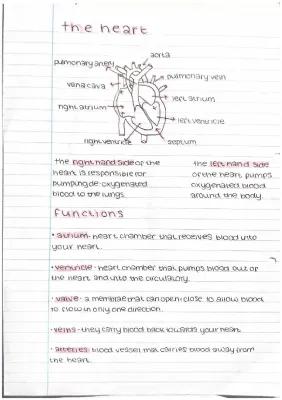 the heart
aorta
pulmonary artery
pulmonary vein
vena cava
left atrium
right atrium
left ventricle
right ventricle
septum
the right hand side of the
heart is responsible for
pumping de-oxygenated
blood to the lungs.
the left hand side
of the heart pumps
oxygenated blood
around the body.
functions
• atrium - heart chamber that receives blood into
your heart.
• ventricle - heart chamber that pumps blood out of
the heart and into the circulatory.
• valve - a membrae that can open/close to allow blood
to flow in only one direction.
• veins - they carry blood back towards your heart
• arteries blood vessel that carries blood away from
the heart.